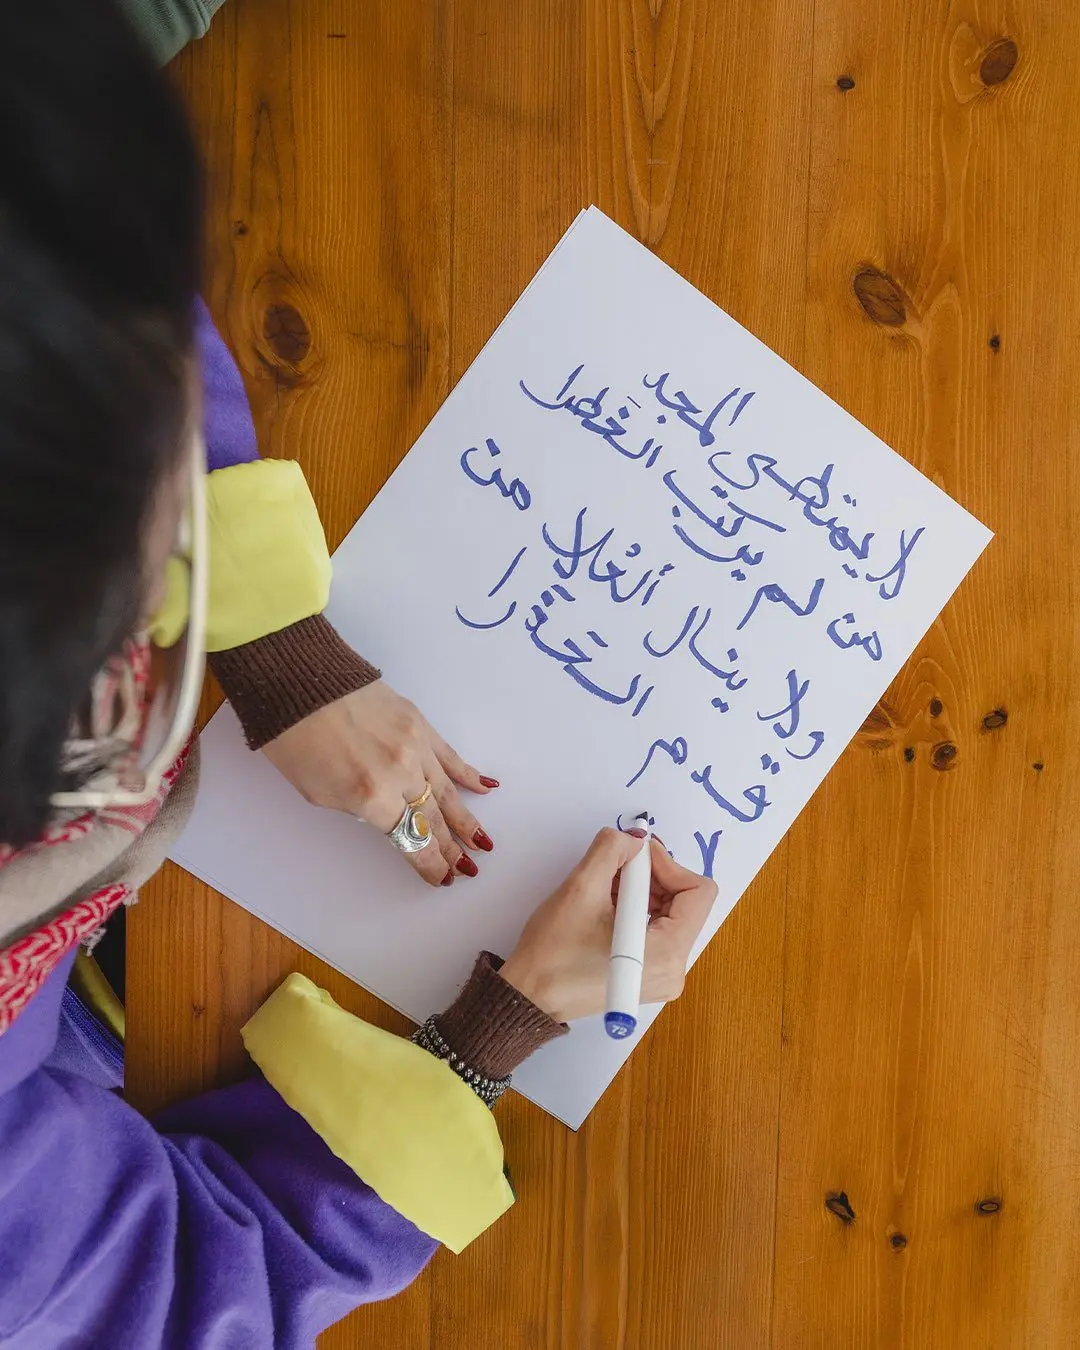 لا يمتطى المجد
من لم يركب الخَطرا
ولا ينال العُلا من
قدم الحَذَرا
لا